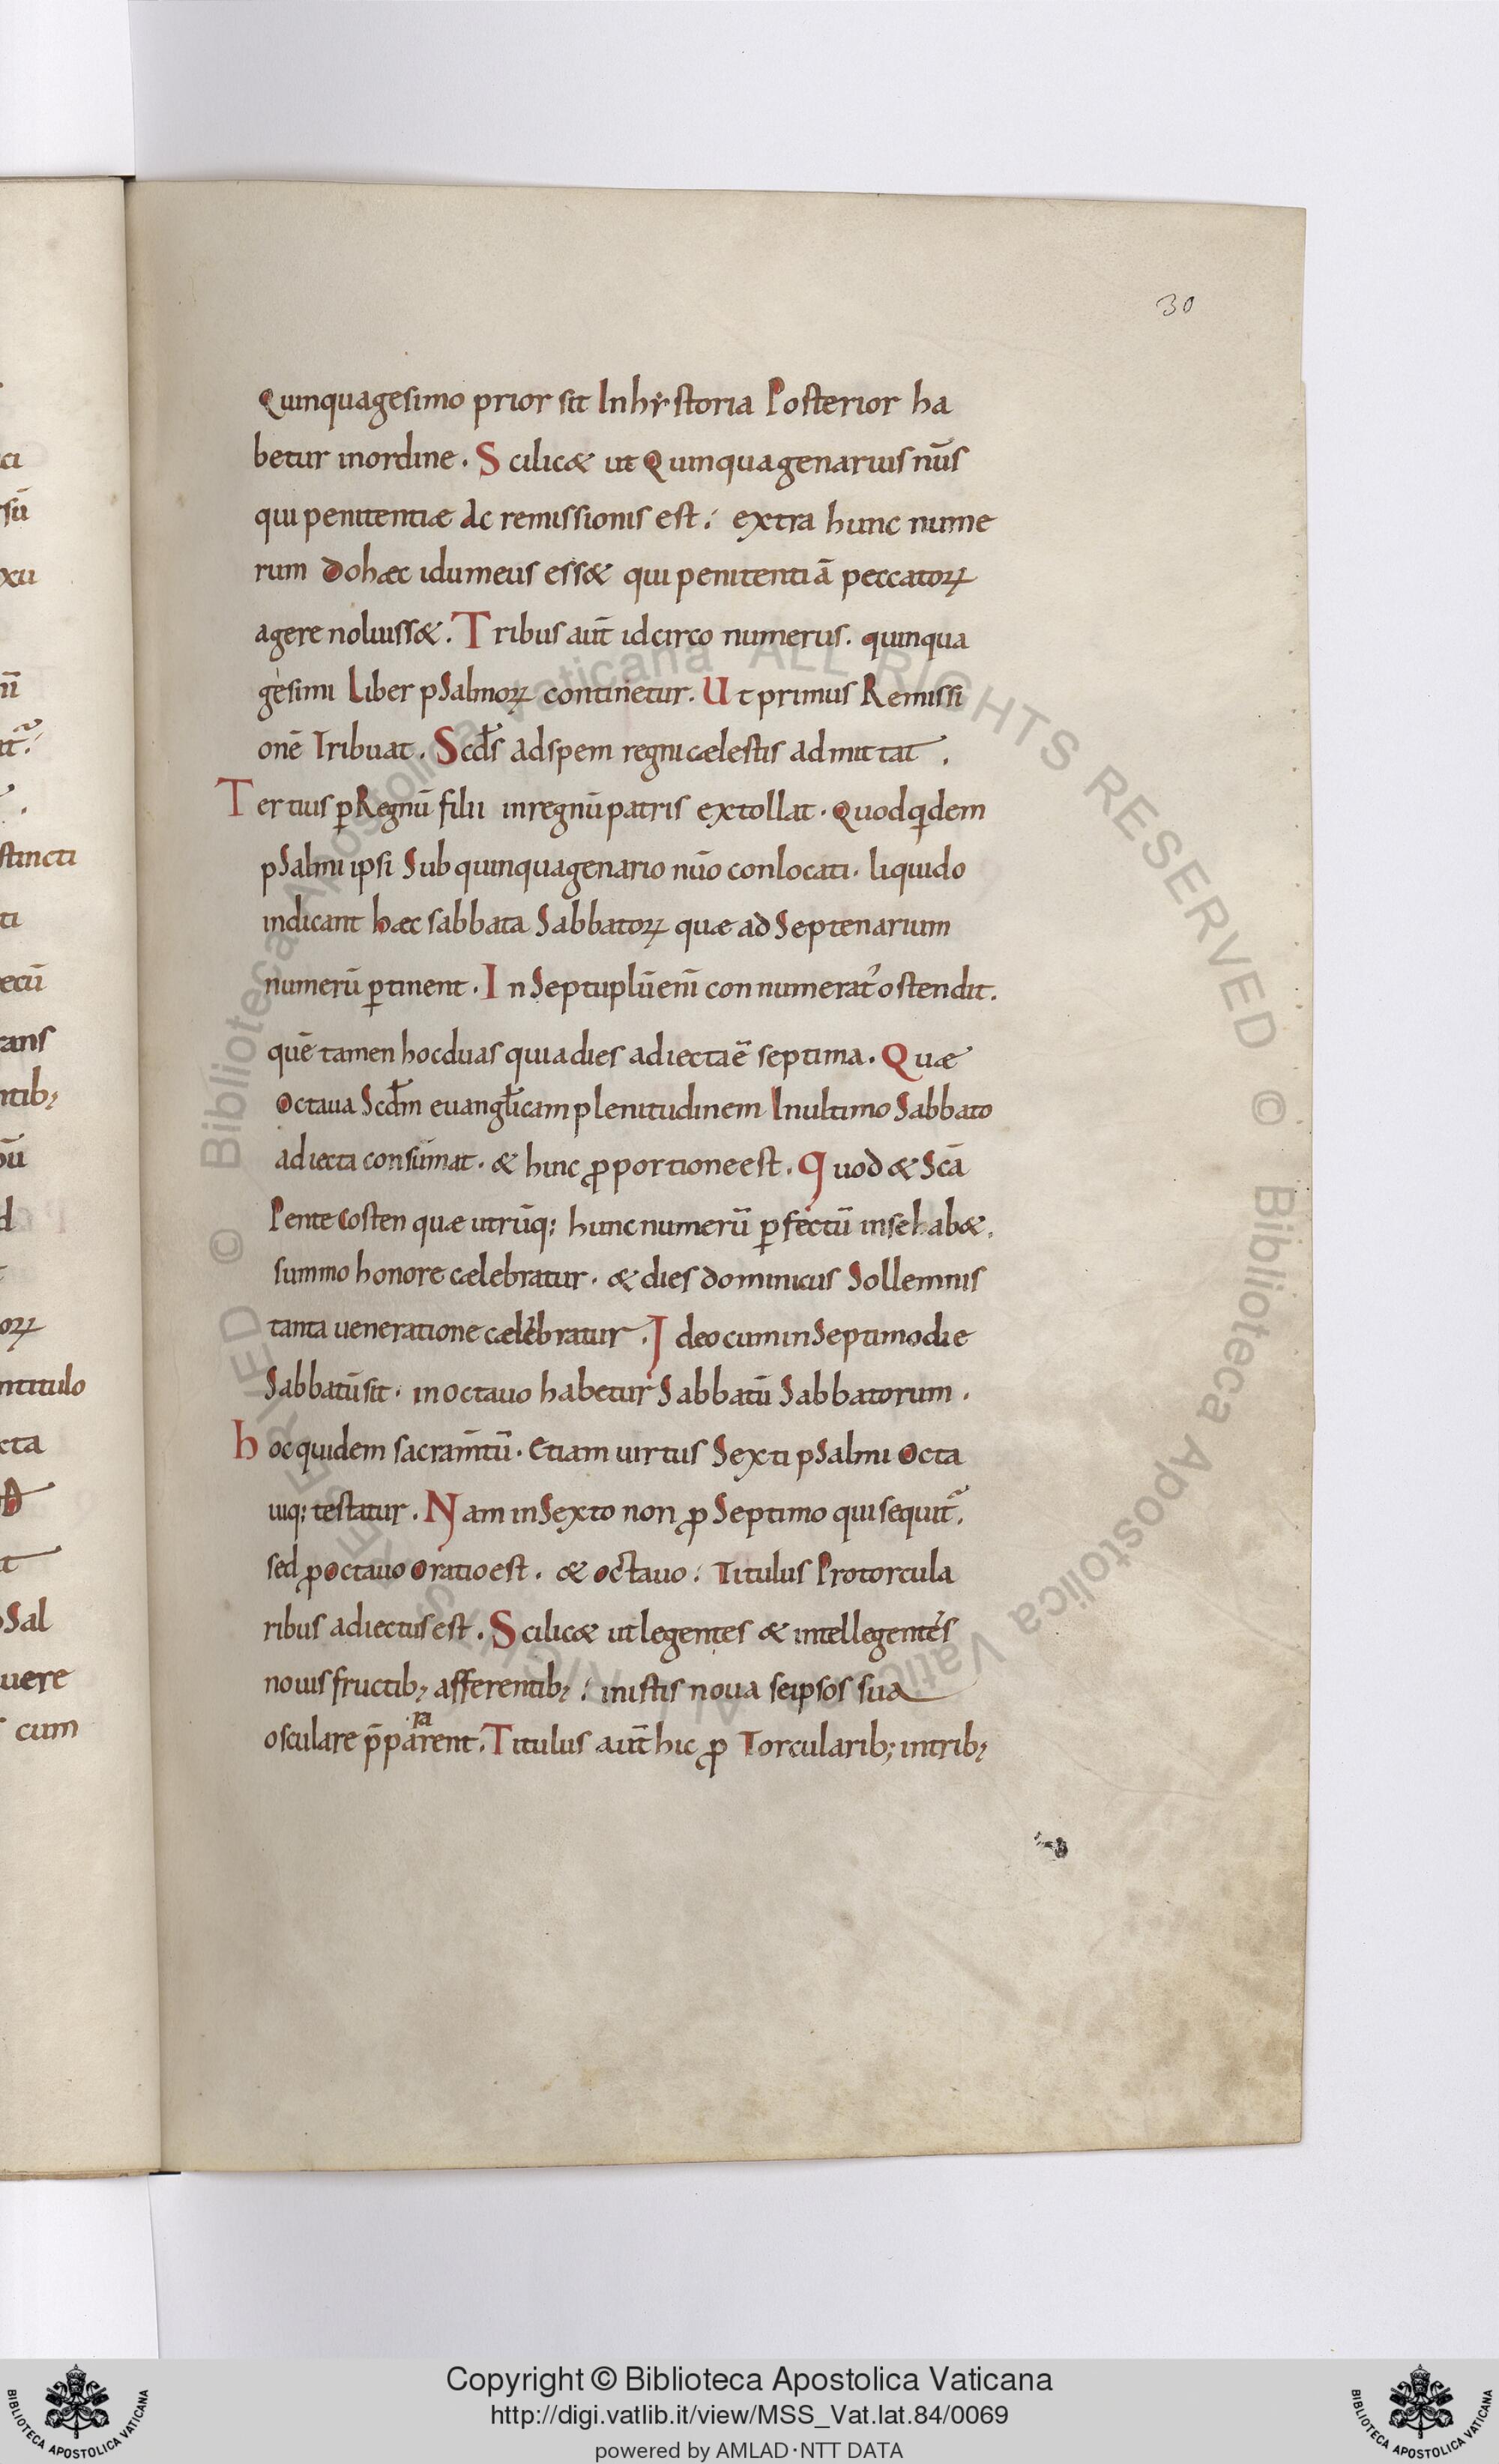 30
ci
sū
xii
stincti
ti
ecū
rans
ntib;
orꝝ
ntitulo
cta
Sal
uere
cum
Quinquagesimo prior sit In hystoria Posterior ha
betur inordine. Scilic& ut Quinquagenarius nūs
qui penitentiæ Ac remissionis est; extra hunc nume
rum dohæc idumeus ess& qui penitentiā peccatorꝝ
agere noluiss&. Tribus aūt idcirco numerus. quinqua
gesimi Liber pSalmorꝝ continetur. Ut primus Remissi
onē Tribuat. Scd̄s adspem regni cælestis admittat.
Tertius ꝑRegnū filii inregnū patris extollat. Quodqdem
pSalmi ipsi Sub quinquagenario nūo conlocati. liquido
indicant hæc sabbata Sabbatorꝝ quæ ad Septenarium
numerū ꝑtinent. In Septuplū enī connumerat' ostendit.
quē tamen hocduas quia dies adiecta ē septima. Quæ
Octaua Scd̄m euangl̄icam plenitudinem Inultimo Sabbato
adiecta consūmat. & hinc ꝓportione est. Quod & Scā
PenteCosten quæ utrūq; hunc numerū ꝑfectū inse hab&.
summo honore cælebratur. & dies dominicus Sollemnis
tanta ueneratione cælebratur. Ideo cum in Septimo die
Sabbatū sit. in octauo habetur Sabbatū Sabbatorum.
hoc quidem sacram̄tū. etiam uirtus Sexti pSalmi Octa
uiq; testatur. Nam in Sexto non ꝓ Septimo qui sequit̄.
sed ꝓ octauo oratio est. & octauo; Titulus Protorcula
ribus adiectus est. Scilic& ut legentes & intellegentes
nouis fructib; afferentib; ; inistis noua seipsos sua
ra
osculare p̄parent. Titulus aūt hic ꝓ Torcularib; intrib;
© Biblioteca Apostolica Vaticana ALL RIGHTS RESERVED © Biblioteca Apostolica Vaticana ALL RIGHTS RESERVED
Copyright © Biblioteca Apostolica Vaticana
http://digi.vatlib.it/view/MSS_Vat.lat.84/0069
powered by AMLAD·NTT DATA
BIBLIOTECA APOSTOLICA VATICANA
BIBLIOTECA APOSTOLICA VATICANA